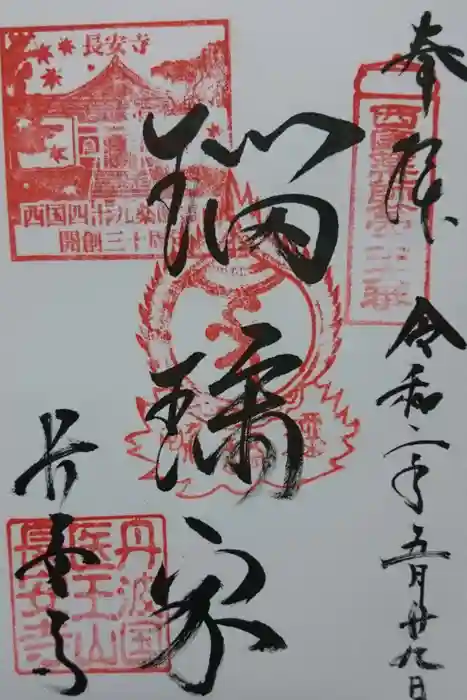 奉拝
令和二年五月廿九日
瑠璃家
長安寺
長安寺
西国四十九薬師霊場
開創三十周年
丹波国
医王山
長安寺